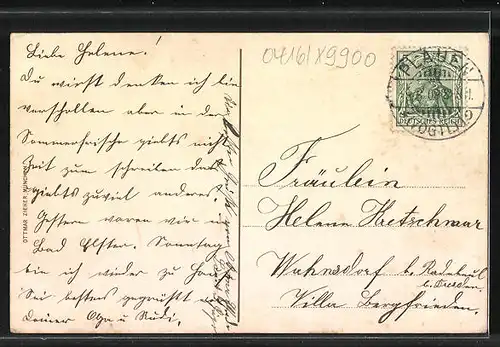 Liebe Helene!
Du wirst denken ich bin
verschollen aber in der
Sommerfrische giebts nicht
Zeit zum schreiben da
giebts zuviel anderes.
Gestern waren wir in
Bad Elster. Sonntag
bin ich wieder zu Haus
Sei bestens gegrüßt von
Deiner Olga und Rudi.
04161 X9900
PLAUEN
(VOGTL.) 2
DEUTSCHES REICH
Fräulein
Helene Kretschmar
Wahnsdorf b. Radebeul
b. Dresden.
Villa Bergfrieden.
OTTMAR ZIEHER, MÜNCHEN